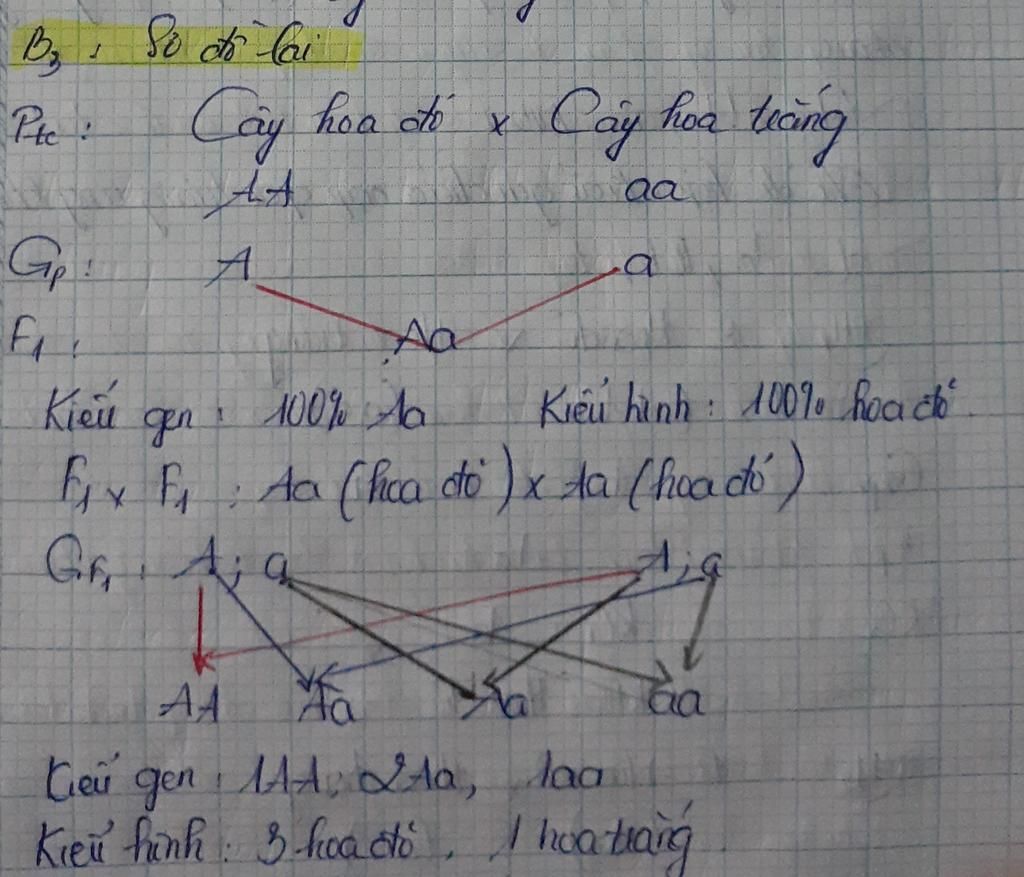 B3: Sơ đồ lai
Ptc: Cây hoa đỏ x Cây hoa trắng
AA aa
Gp: A a
F1: Aa
Kiểu gen: 100% Aa Kiểu hình: 100% hoa đỏ.
F1 x F1: Aa (hoa đỏ) x Aa (hoa đỏ)
GF1: A; a A; a
AA Aa Aa aa
Kiểu gen: 1AA; 2Aa, 1aa
Kiểu hình: 3 hoa đỏ, 1 hoa trắng